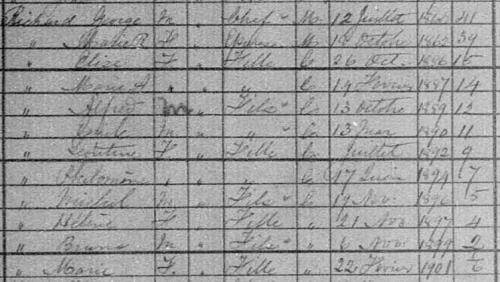 Richard George M " Chef " M 12 Juillet 41
" Marie R F " Epouse M Octobre 1862 39
" Elise F " Fille C 26 Oct. 1886 15
" Marie A " " " C 14 Février 1887 14
" Alfred M " Fils " C 13 Octobre 1889 12
" M " " " C 13 Mai 1890 11
" F " Fille C Juillet 1892 9
" Philomène " " " C 17 1894 7
" M " Fils " C 17 Nov. 1896 5
" Hélène F " Fille " 21 Nov 1897 4
" Bruno M " Fils " " 6 Nov. 1899 2
" Marie F. " Fille " 22 Février 1901